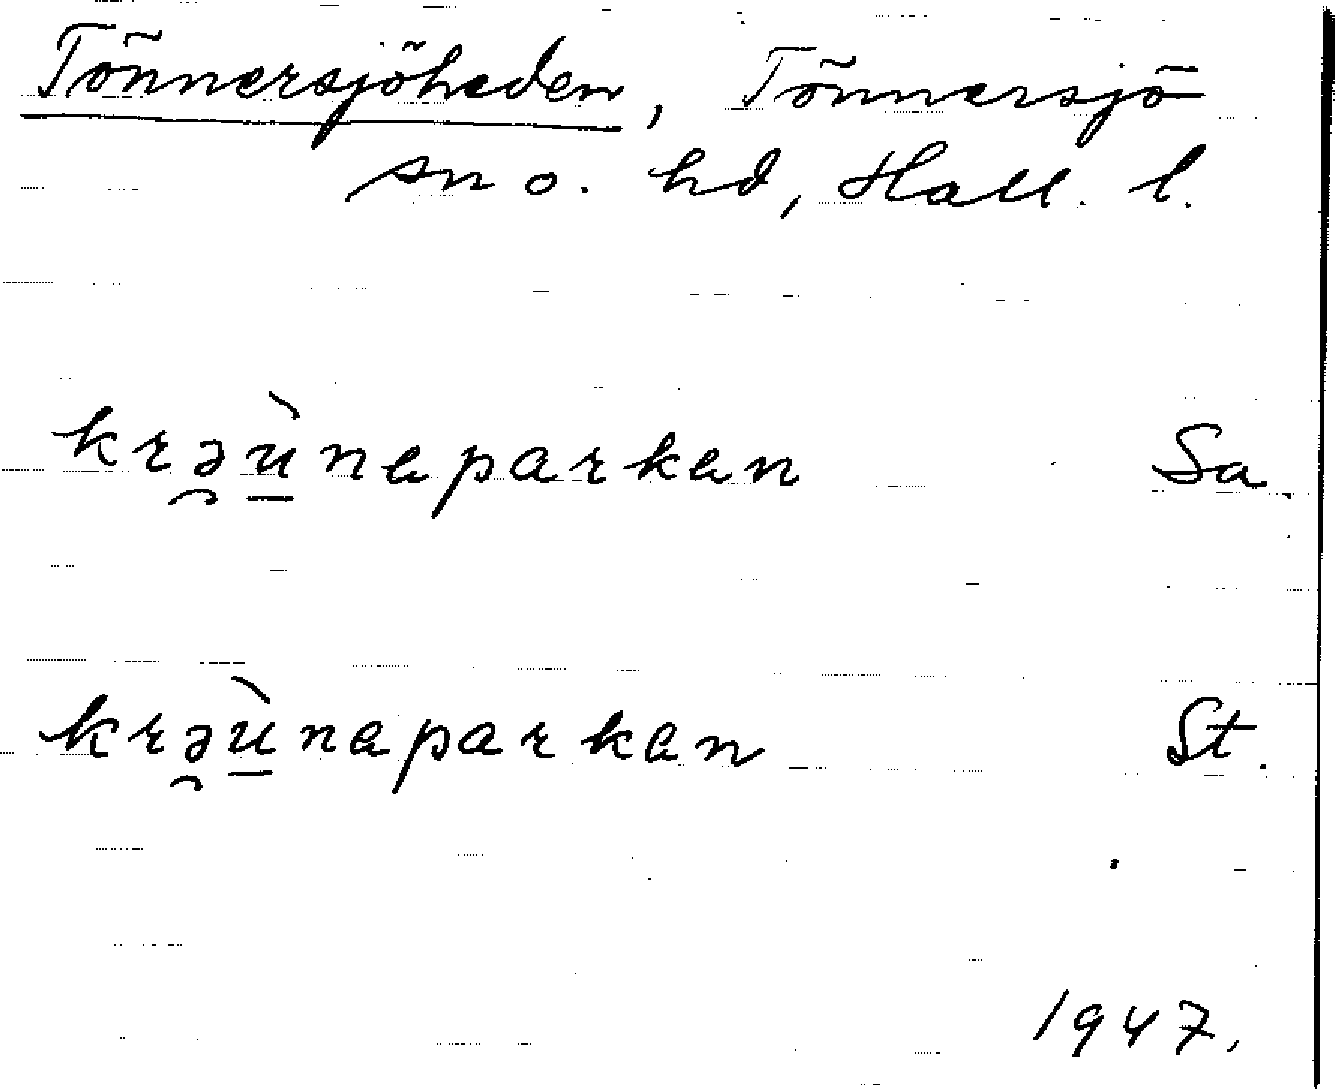 Tönnersjöheden, Tönnersjö
sn o. hd, Hall. l.
krə̯ù̱naparkan Sa.
krə̯ù̱naparkan St.
1947.